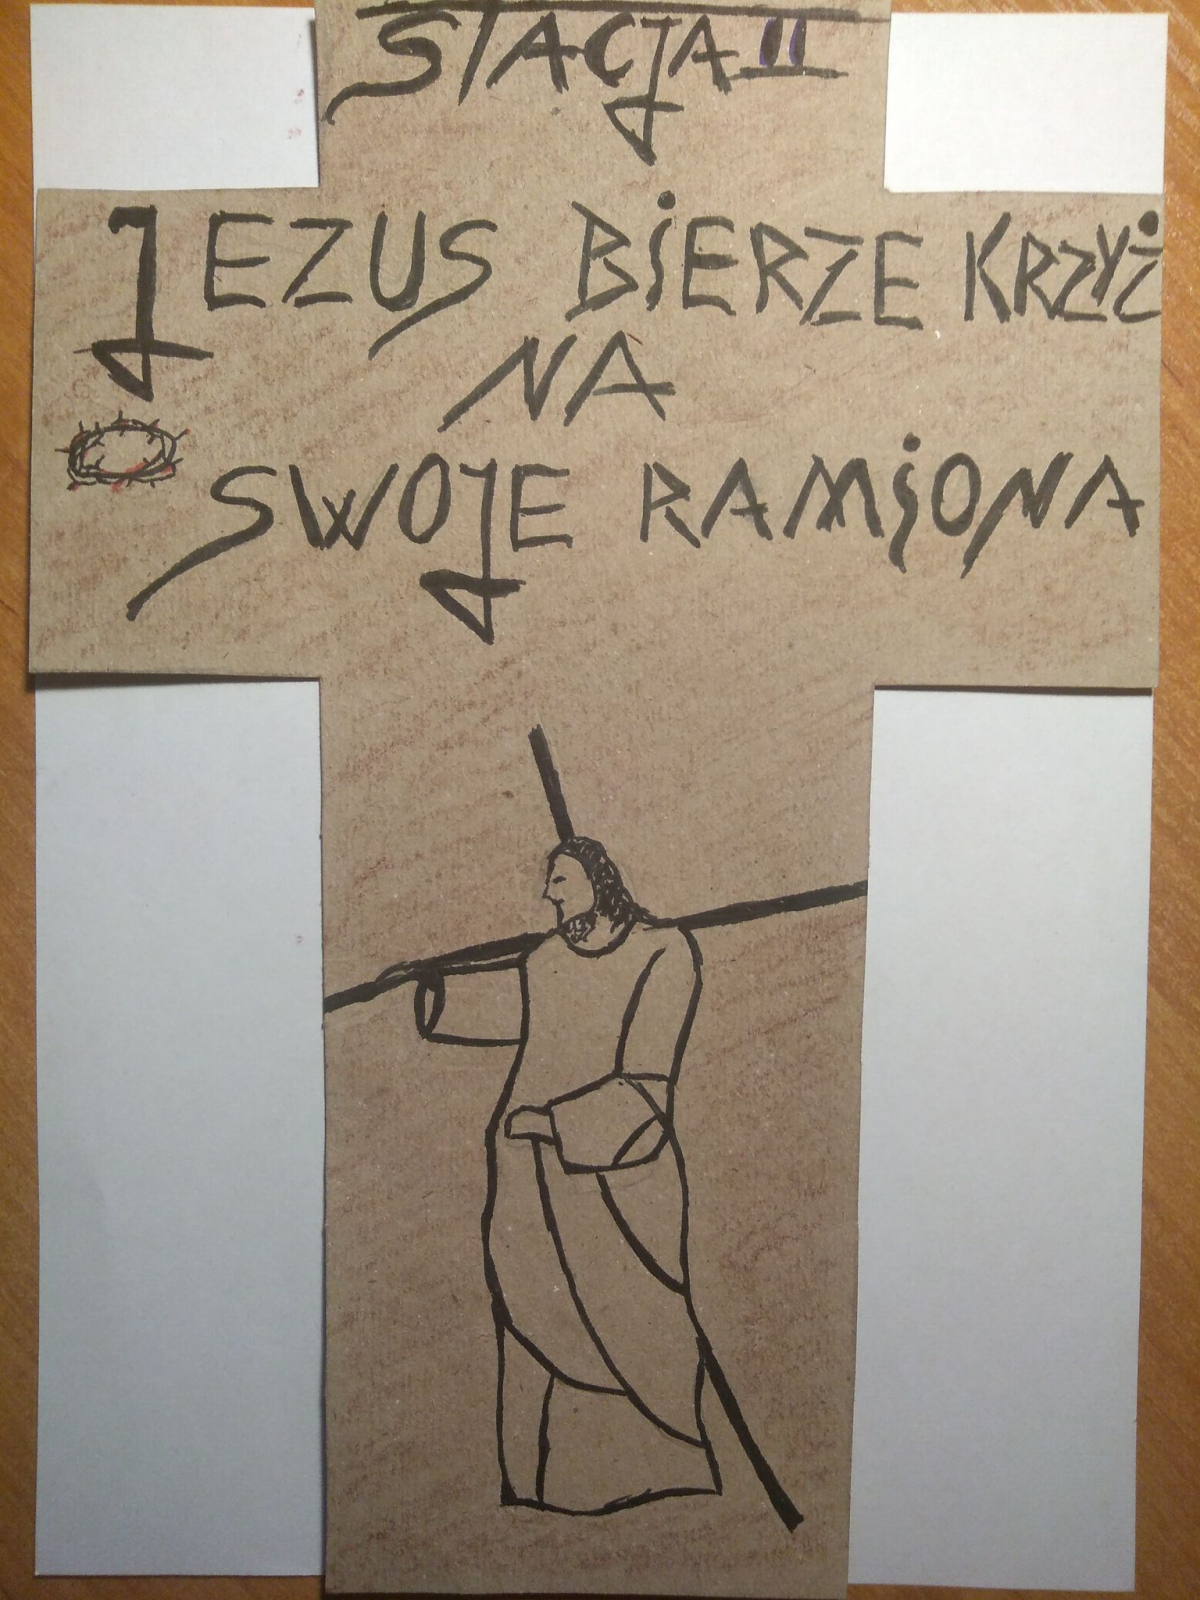 STACJA II
JEZUS BiERZE KRZYŻ
NA
SWOJE RAMiONA